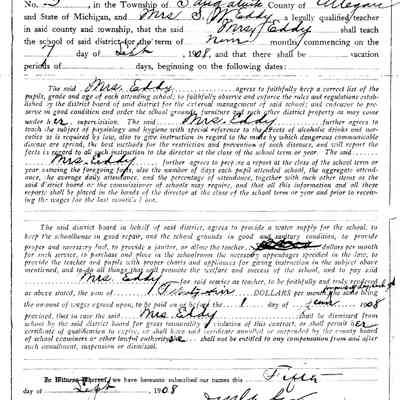 No. 5, in the Township of Saugatuck County of Allegan
and State of Michigan, and Mrs S. W. Eddy, a legally qualified teacher
in said county and township, that the said Mrs Eddy shall teach
the school of said district for the term of nine months commencing on the
day of Sept 1908, and that there shall be vacation
periods of days, beginning on the following dates:
The said Mrs. Eddy agrees to faithfully keep a correct list of the
pupils, grade and age of each attending school; to faithfully observe and enforce the rules and regulations estab-
lished by the district board of said district for the external management of said school; and endeavor to pre-
serve in good condition and order the school grounds, furniture and such other district property as may come
under her supervision. The said Mrs. Eddy further agrees to
teach the subject of physiology and hygiene with special reference to the effects of alcoholic drinks and nar-
cotics as is required by law, also to give instruction in regard to the mode by which dangerous communicable
disease are spread, the best methods for the restriction and prevention of such diseases, and will report the
facts in regard to all such instruction to the director at the close of the school term or year. The said
Mrs. Eddy further agrees to keep a report at the close of the school term or
year naming the foregoing facts, also the number of days each pupil attended school, the aggregate attend-
ance, the average daily attendance, and the percentage of attendance, together with such other items as the
said district board or the commissioner of schools may require, and that all this information and all these
reports shall be placed in the hands of the director at the close of the school term or year and prior to receiv-
ing the wages for the last month's
The said district board in behalf of said district, agrees to provide a water supply for the school, to
keep the schoolhouse in good repair, and the school grounds in good and sanitary condition, to provide
proper and necessary fuel, to provide a janitor, or allow the teacher dollars per month
for such service, to purchase and place in the schoolroom the necessary appendages specified in the law, to
provide the teacher and pupils with proper charts and appliances for giving instruction in the subject above
mentioned, and to do all things that will promote the welfare and success of the school, and to pay said
Mrs Eddy for said services as teacher, to be faithfully and truly rendered
as above stated, the sum of DOLLARS per month
the amount of wages agreed upon, to be paid on or before the 1 day of June 1908
provided, that in case the said Mrs. Eddy shall be dismissed from
school by the said district board for gross immorality or violation of this contract, or shall permit her
certificate of qualification to expire, or shall have said certificate annulled or suspended by the county board
of school examiners or other lawful authority, she shall not be entitled to any compensation from and after
such annulment, suspension or dismissal.
In Witness Whereof, we have hereunto subscribed our names this
day of Sept 1908